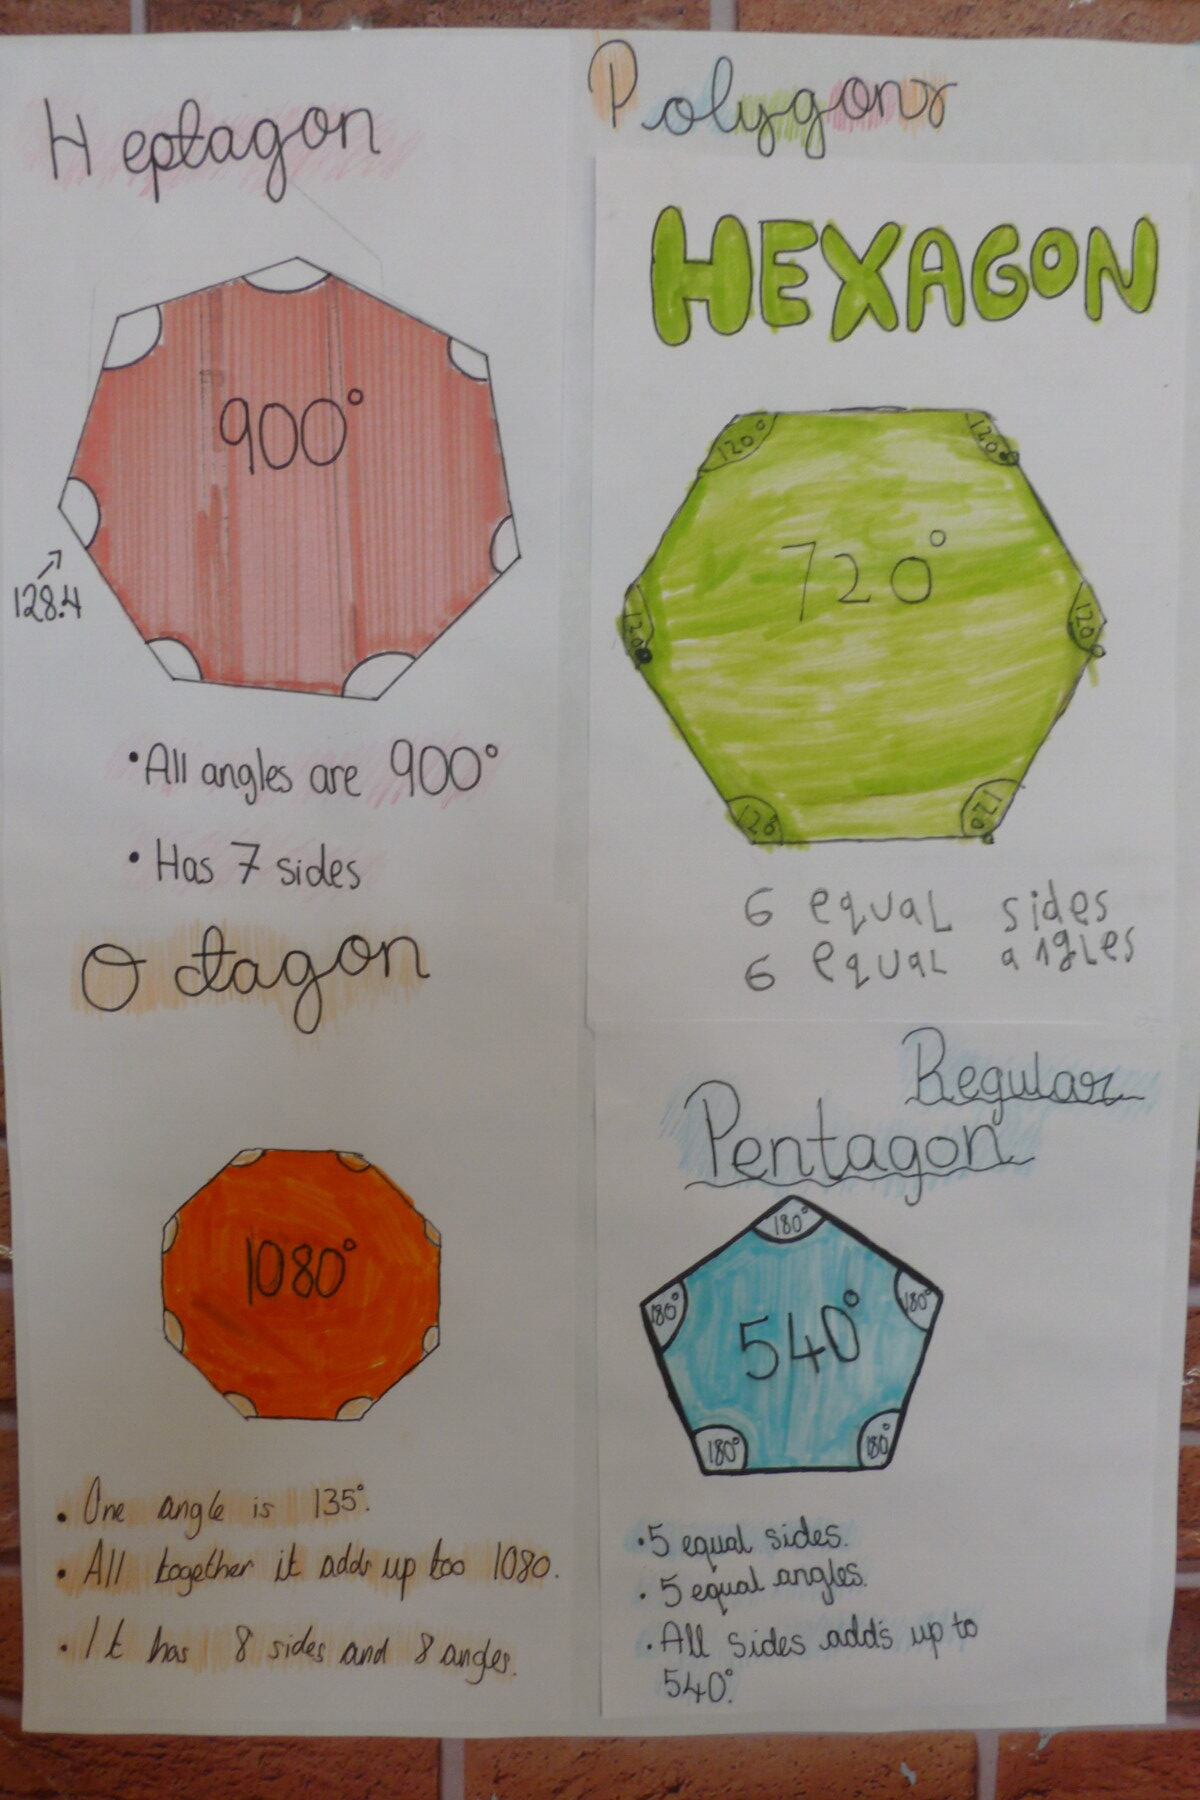 Polygons
Heptagon
900°
128.4
•All angles are 900°
•Has 7 sides
HEXAGON
120°
120°
720°
120°
120°
120
120
6 equal sides
6 equal angles
Octagon
1080°
• One angle is 135°.
• All together it adds up too 1080.
• It has 8 sides and 8 angles.
Regular
Pentagon
180°
180°
180°
540°
180°
180°
•5 equal sides.
• 5 equal angles.
•All sides adds up to
540°.